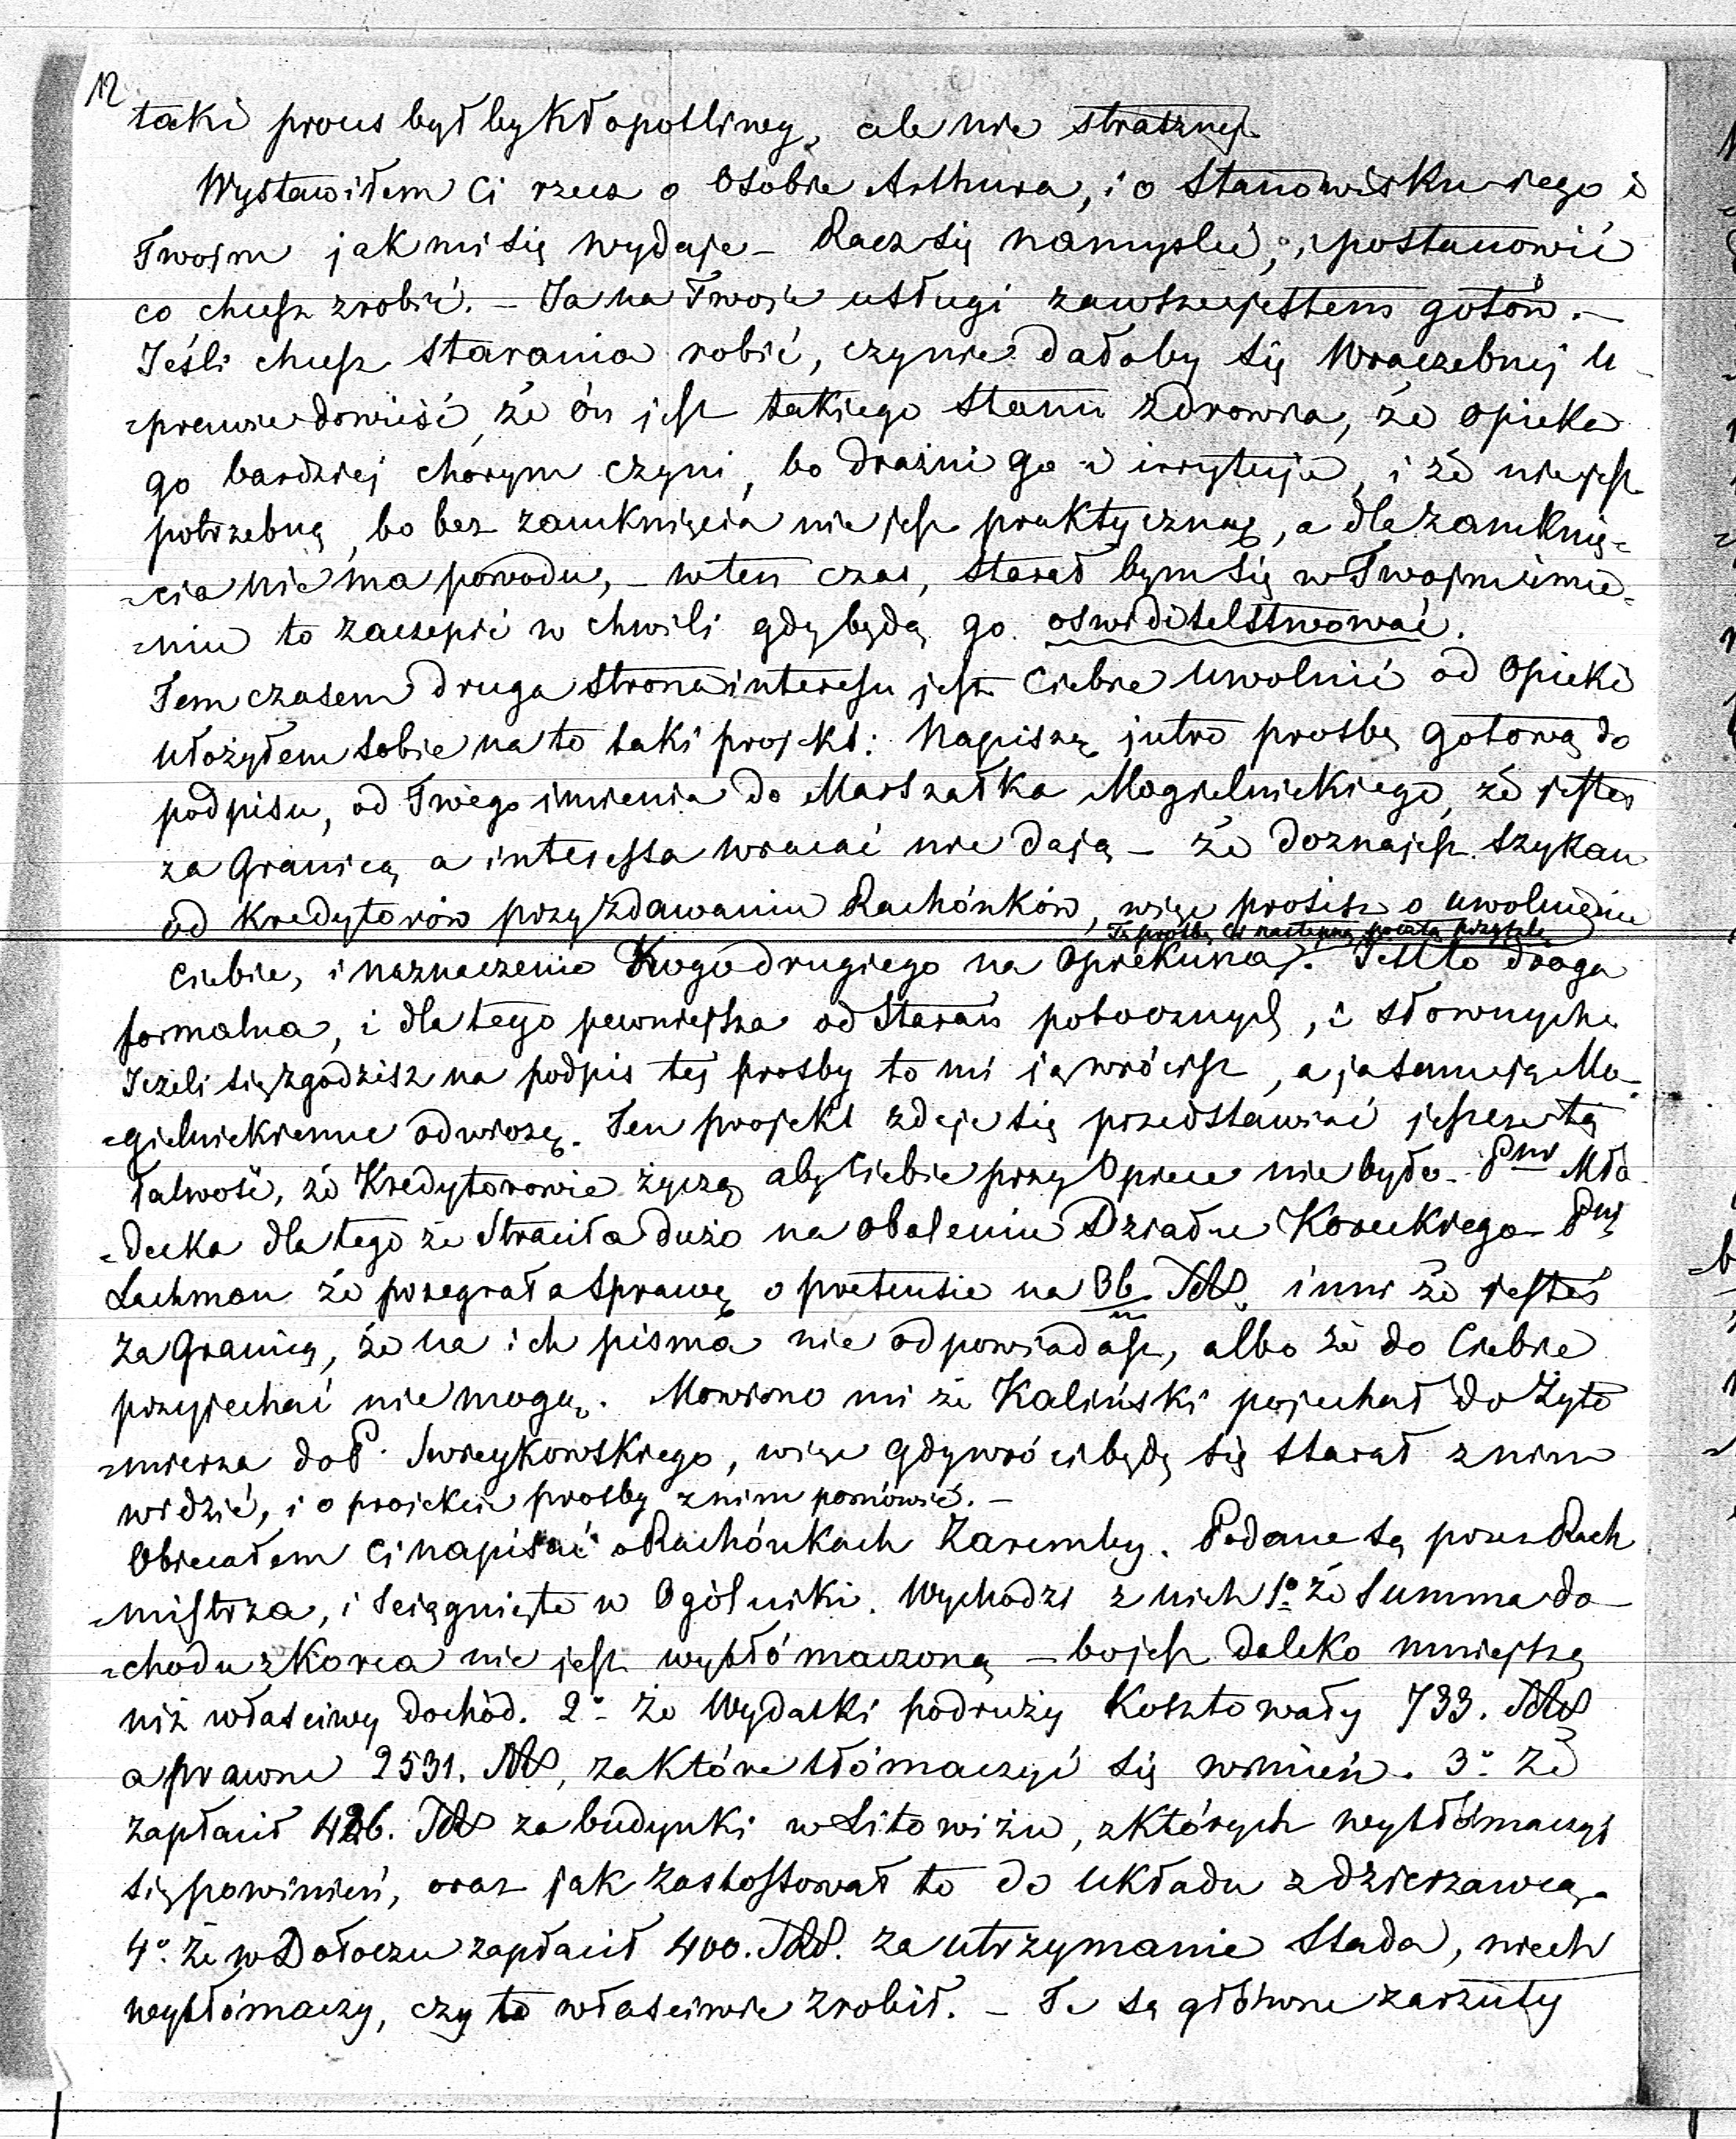 12
taki proces byłby kłopotliwy, ale nie straszny.
Wystawiłem Ci rzecz o Osobie Arthura, i o Stanowisku jego i
Twojm jak mi się wydaje – Racz się namyslić, i postanowić
co chcesz zrobić. – Ja na Twoje usługi zawsze jestem gotów. –
Jeśli chcesz starania robić, czy nie dałoby się Wraczebnej U-
-prawie dowieść, że ón jest takiego stanu zdrowia, że opieka
go bardziej chorym czyni, bo drażni go i irrytuje, i że nie jest
potrzebną, bo bez zamknięcia nie jest praktyczną, a dla zamknię-
-cia nie ma powodu, – wten czas, starał bym się w Twojm imie-
-niu to zaczepić w chwili gdy będą go oswiditelstwować.
Tem czasem druga strona interesu jest Ciebie uwolnić od Opieki
Ułożyłem sobie na to taki projekt: Napiszę jutro prosbę gotową do
podpisu, od Twego imienia do Marszałka Mogielnickiego, że jesteś
za Granicą a interessa wracać nie dają – że doznajesz szykan
od Kredytorów przy zdawaniu Rachónków, więc prosisz o uwolnienie
Tę prosbę Ci następną pocztą przyszlę
Ciebie, i naznaczenie Kogo drugiego na Opiekuna. Jest to droga
formalna, i dla tego pewniejsza od starań potocznych, i słownych.
Jeżeli się zgodzisz na podpis tej prosby to mi ją wrócisz, a ja sam ją Mo-
-gielnickiemu odwiozę. Ten projekt zdaje się przedstawiać jeszcze tę
łatwość, że Kredytorowie życzą aby Ciebie przy Opiece nie było – Pni Mło-
-decka dla tego że straciła dużo na obaleniu Dziadu Koreckiego – Pni
Lachman że przegrała sprawę o pretensie na 36 m Rbs. inni że jesteś
za Granicą, że na ich pisma nie odpowiadasz, albo że do Ciebie
przyjechać nie mogą. Mowiono mi że Kaliński pojechał do Żyto
-mierza do P. Swieykowskiego, więc gdy wróci będę się starał z nim
widzić, i o projekcie prosby z nim pomówić. –
Obiecałem Ci napisać o Rachónkach Zaremby. Podane są przez Rach
-mistrza, i sciągnięte w Ogólniki. Wychodzi z nich 1o że Summa do-
-chodu z Korca nie jest wytłómaczoną – bo jest daleko mniejszą
niż własciwy dochód. 2o Że Wydatki podruży kosztowały 733. Rbs
a prawne 2531. Rbs, za które tłómaczyć się winień. 3o Że
zapłacił 426. Rbs za budynki w Litowiżu, z których wytłómaczyć
się powinień, oraz jak zastossował to do układu z dzierzawcą.
4o. Że w Dołoczu zapłacił 400. Rbs. za utrzymanie Stada, niech
wytłómaczy, czy to własciwie zrobił. – Te są główne zarzuty